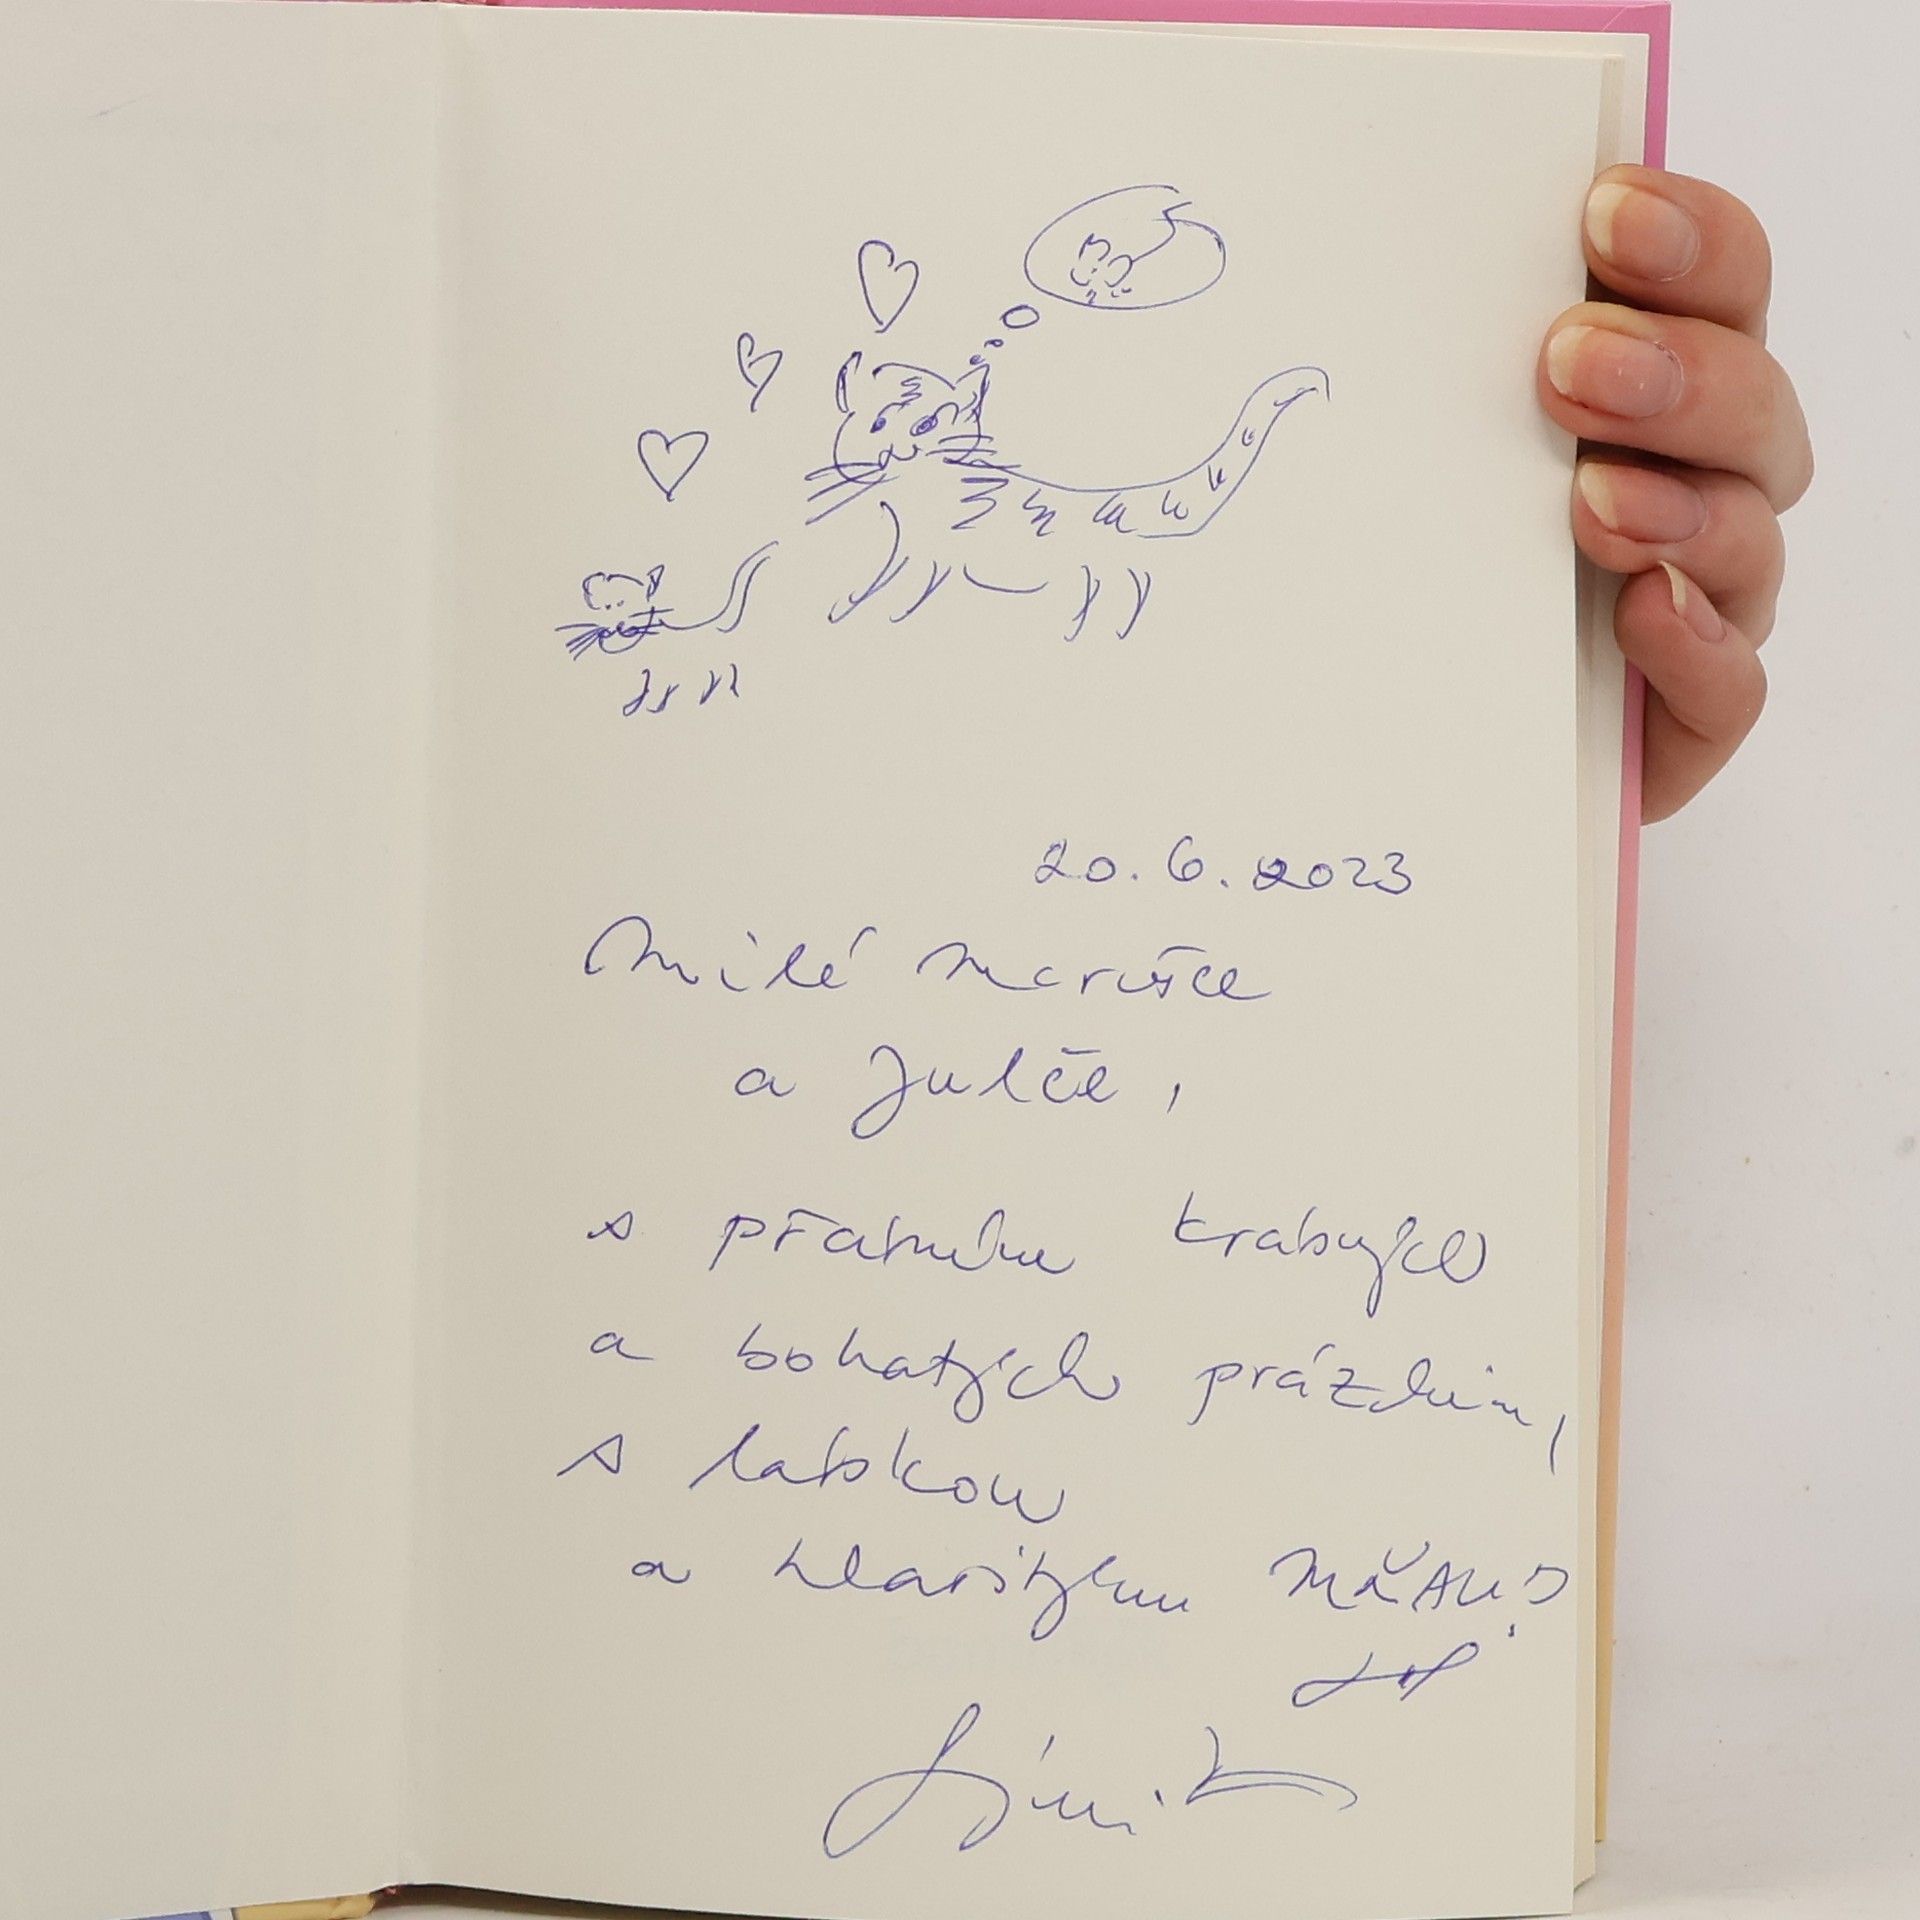 20. 6. 2023
Milé Marušce
a Julče,
s přáním krásných
a bohatých prázdnin,
s láskou
a hlasitým MŇAU!